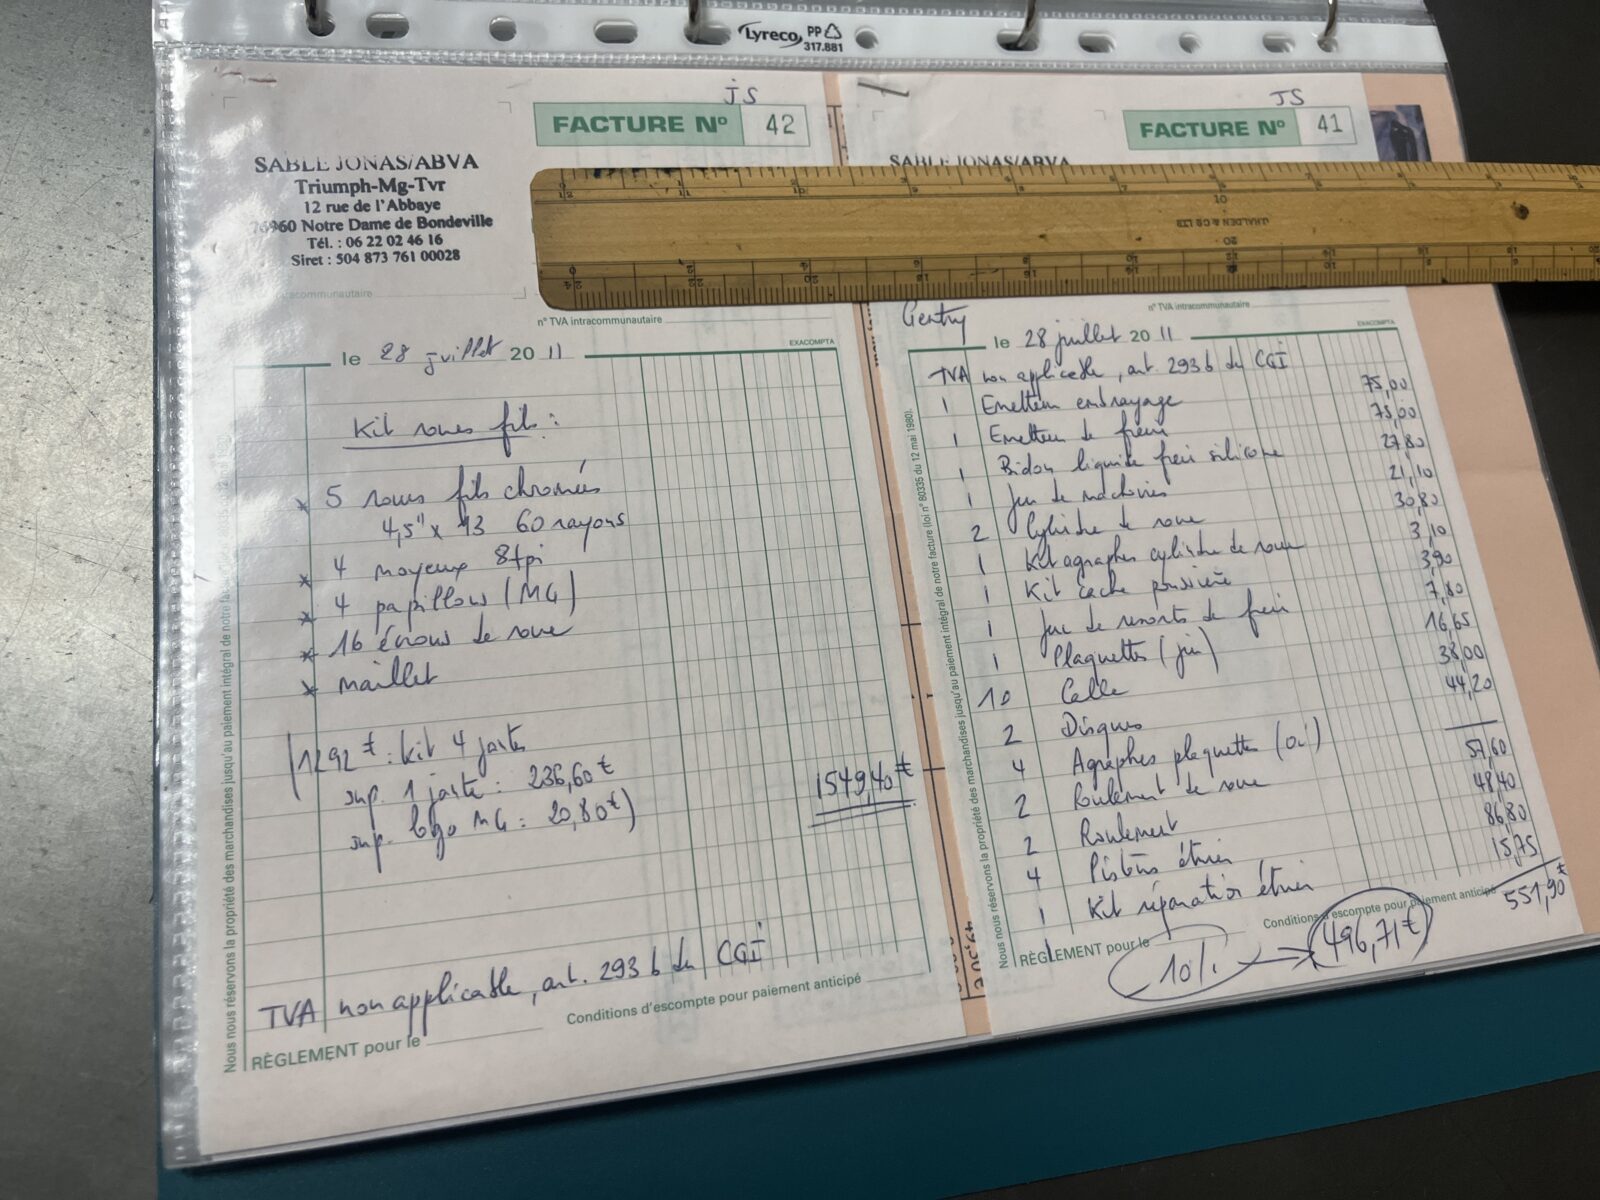 Lyreco PP
317.881
JS
FACTURE Nº 42
SABLE JONAS/ABVA
Triumph-Mg-Tvr
12 rue de l'Abbaye
76960 Notre Dame de Bondeville
Tél. : 06 22 02 46 16
Siret : 504 873 761 00028
intracommunautaire
n° TVA intracommunautaire
EXACOMPTA
le 28 juillet 20 11
Kit roues fils :
x 5 roues fils chromées
4,5" x 13 60 rayons
x 4 moyeux 8tpi
x 4 papillons (MG)
x 16 écrous de roue
x maillet
(1292 € : kit 4 jantes
sup. 1 jante : 236,60 €
sup. logo MG : 20,80 €)
1549,40 €
TVA non applicable, art. 293 b du CGI
Conditions d'escompte pour paiement anticipé
RÈGLEMENT pour le
Nous nous réservons la propriété des marchandises jusqu'au paiement intégral de notre
JS
FACTURE Nº 41
SABLE JONAS/ABVA
J.HALDEN & CO LTD
n° TVA intracommunautaire
Gentry
EXACOMPTA
le 28 juillet 20 11
TVA non applicable, art 293 b du CGI
1 Emetteur embrayage 75,00
1 Emetteur de frein 75,00
1 Bidon liquide frein silicone 27,80
1 Jeu de machoires 21,10
2 Cylindre de roue 30,80
1 Kit agraphes cylindre de roue 3,10
1 Kit cache poussière 3,90
1 Jeu de ressorts de frein 7,80
1 Plaquettes (jeu) 16,65
10 Calle 38,00
2 Disques 44,20
4 Agraphes plaquettes
2 Roulement de roue 57,60
2 Roulement 48,40
4 Pistons étrier 86,80
1 Kit réparation étrier 15,75
551,90 €
Conditions d'escompte pour paiement anticipé
RÈGLEMENT pour le
10% → 496,71 €
Nous nous réservons la propriété des marchandises jusqu'au paiement intégral de notre facture (loi n° 80335 du 12 mai 1980).